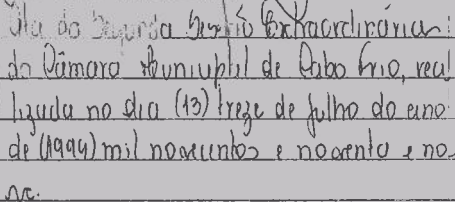 Ata da Segunda Sessão Extraordinária
da Câmara Municipal de Cabo Frio, real
lizada no dia (13) treze de julho do ano
de (1999) mil novecentos e noventa e no
ve.